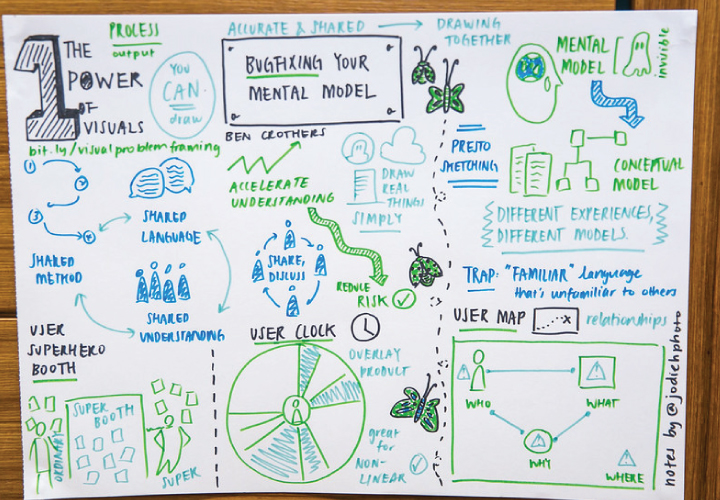 1 THE
POWER
OF
VISUALS
PROCESS
output
YOU
CAN
draw
bit.ly/visualproblemframing
ACCURATE & SHARED → DRAWING
TOGETHER
BUGFIXING YOUR
MENTAL MODEL
BEN CROTHERS
MENTAL
MODEL
invisible
1
2
3
4
SHARED
LANGUAGE
SHARED
METHOD
SHARED
UNDERSTANDING
ACCELERATE
UNDERSTANDING
DRAW
REAL
THINGS
SIMPLY
SHARE,
DISCUSS
REDUCE
RISK
PRESTO
SKETCHING
CONCEPTUAL
MODEL
DIFFERENT EXPERIENCES,
DIFFERENT MODELS.
TRAP: "FAMILIAR" language
that's unfamiliar to others
USER
SUPERHERO
BOOTH
ORDINARY
SUPER
BOOTH
SUPER
USER CLOCK
OVERLAY
PRODUCT
great
for
NON-
LINEAR
USER MAP
x
relationships
WHO
WHAT
WHY
WHERE
notes by @jodiehphoto